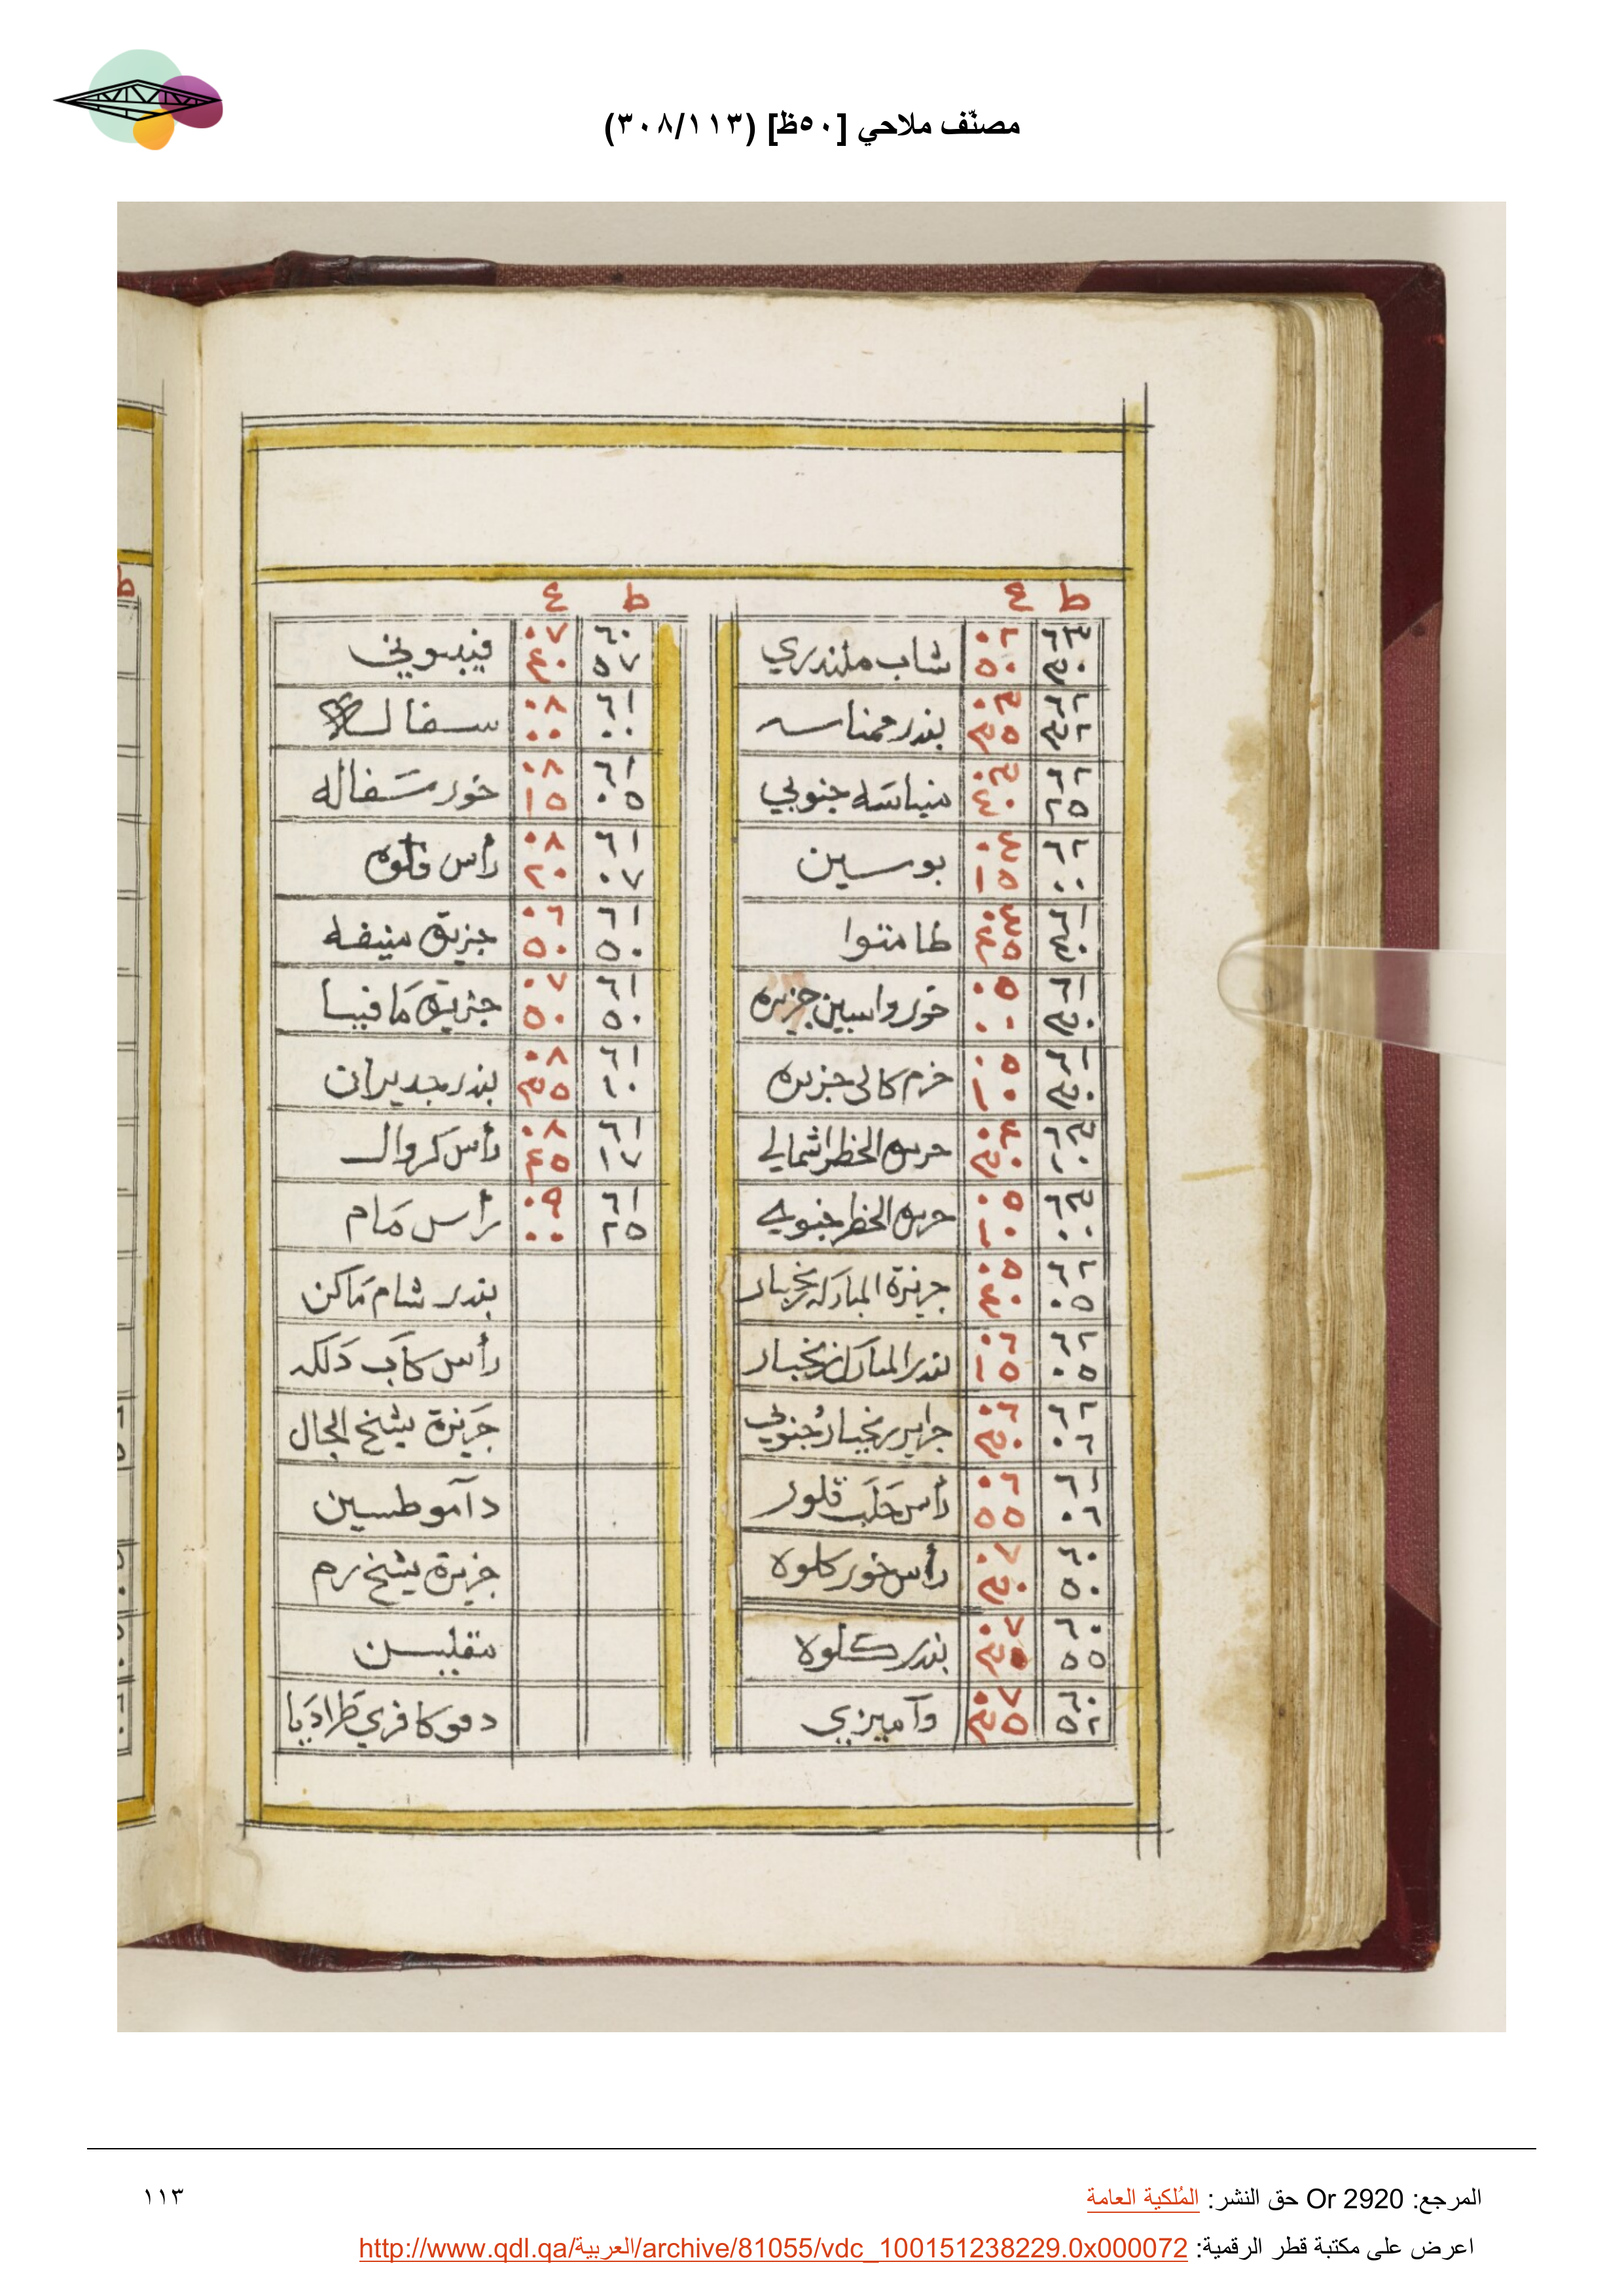 مصنّف ملاحي [٥٠ظ] (٣٠٨/١١٣)
ط ع
٦٣ ٣٠ ٠٢ ٥٠ شاب ملندري
٦٢ ٣٢ ٠٣ ٣٥ بندر ممناسه
٦٢ ٢٥ ٠٣ ٤٠ منباسه جنوبي
٦٢ ٠٠ ٠٤ ١٥ بوسين
٦١ ٤٠ ٠٤ ٤٥ طامتوا
٦١ ٣٠ ٠٥ ٠٠ خور واسين جزيره
٦١ ٣٠ ٠٥ ١٠ خرم كالى جزيره
٦٣ ١٠ ٠٤ ٣٠ الخظرا شمالي
٦٣ ٠٠ ٠٥ ١٠ الخظرا جنوبي
٦٢ ٠٥ ٠٥ ٤٠ جزيرة المباركه زنجبار
٦٢ ٠٥ ٠٦ ١٥ بندر المبارك زنجبار
٦٢ ٠٦ ٠٦ ٣٠ جزاير زنجبار جنوبي
٦١ ٠٦ ٠٦ ٥٥ رأس حَلَب قلور
٦٠ ٥٠ ٠٧ ٣٠ رأس خور كلوه
٦٠ ٥٥ ٠٧ ٣٠ بندر كلوه
٦٠ ٥٢ ٠٧ ٣٥ وآميزيي
ط ع
٦٠ ٥٧ ٠٧ ٤٠ فيبسوني
٦١ ٠٠ ٠٨ ٠٠ سفالـ
٦١ ٠٥ ٠٨ ١٥ خور سَفاله
٦١ ٠٧ ٠٨ ٢٠ رأس قلوه
٦١ ٥٠ ٠٦ ٥٠ جزيرة منيفه
٦١ ٥٠ ٠٧ ٥٠ جزيرة مَافيسا
٦١ ١٠ ٠٨ ٣٥ بندر جديران
٦١ ١٧ ٠٨ ٤٥ رأس كروال
٦١ ٢٥ ٠٩ ٠٠ رأس مَام
بندر شام مَاكن
رأس كاَب دَلكه
جَزيرة يشخ الجال
دآمو طسين
جزيرة يشخ رم
منقليسن
دمو كا فري طَرادَيا
المرجع: Or 2920 حق النشر: المُلكية العامة
١١٣
اعرض على مكتبة قطر الرقمية: http://www.qdl.qa/العربية/archive/81055/vdc_100151238229.0x000072